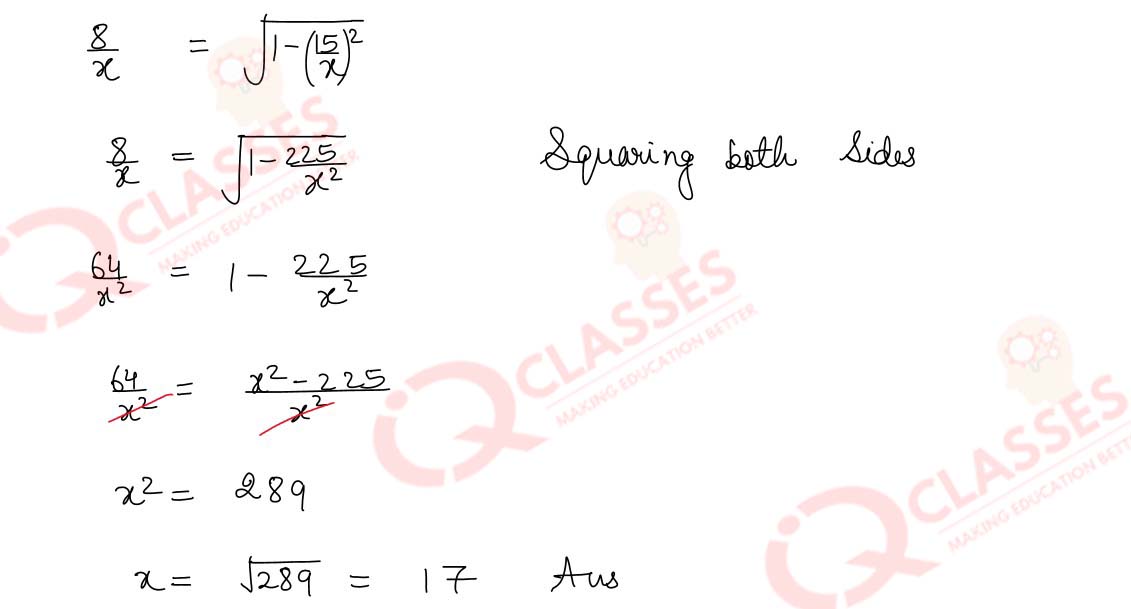 8/x = √(1-(15/x)²)
8/x = √(1-225/x²) Squaring both Sides
64/x² = 1 - 225/x²
64/x² = x²-225/x²
x² = 289
x = √289 = 17 Ans
iQ CLASSES
MAKING EDUCATION BETTER
iQ CLASSES
MAKING EDUCATION BETTER
iQ CLASSES
MAKING EDUCATION BETT